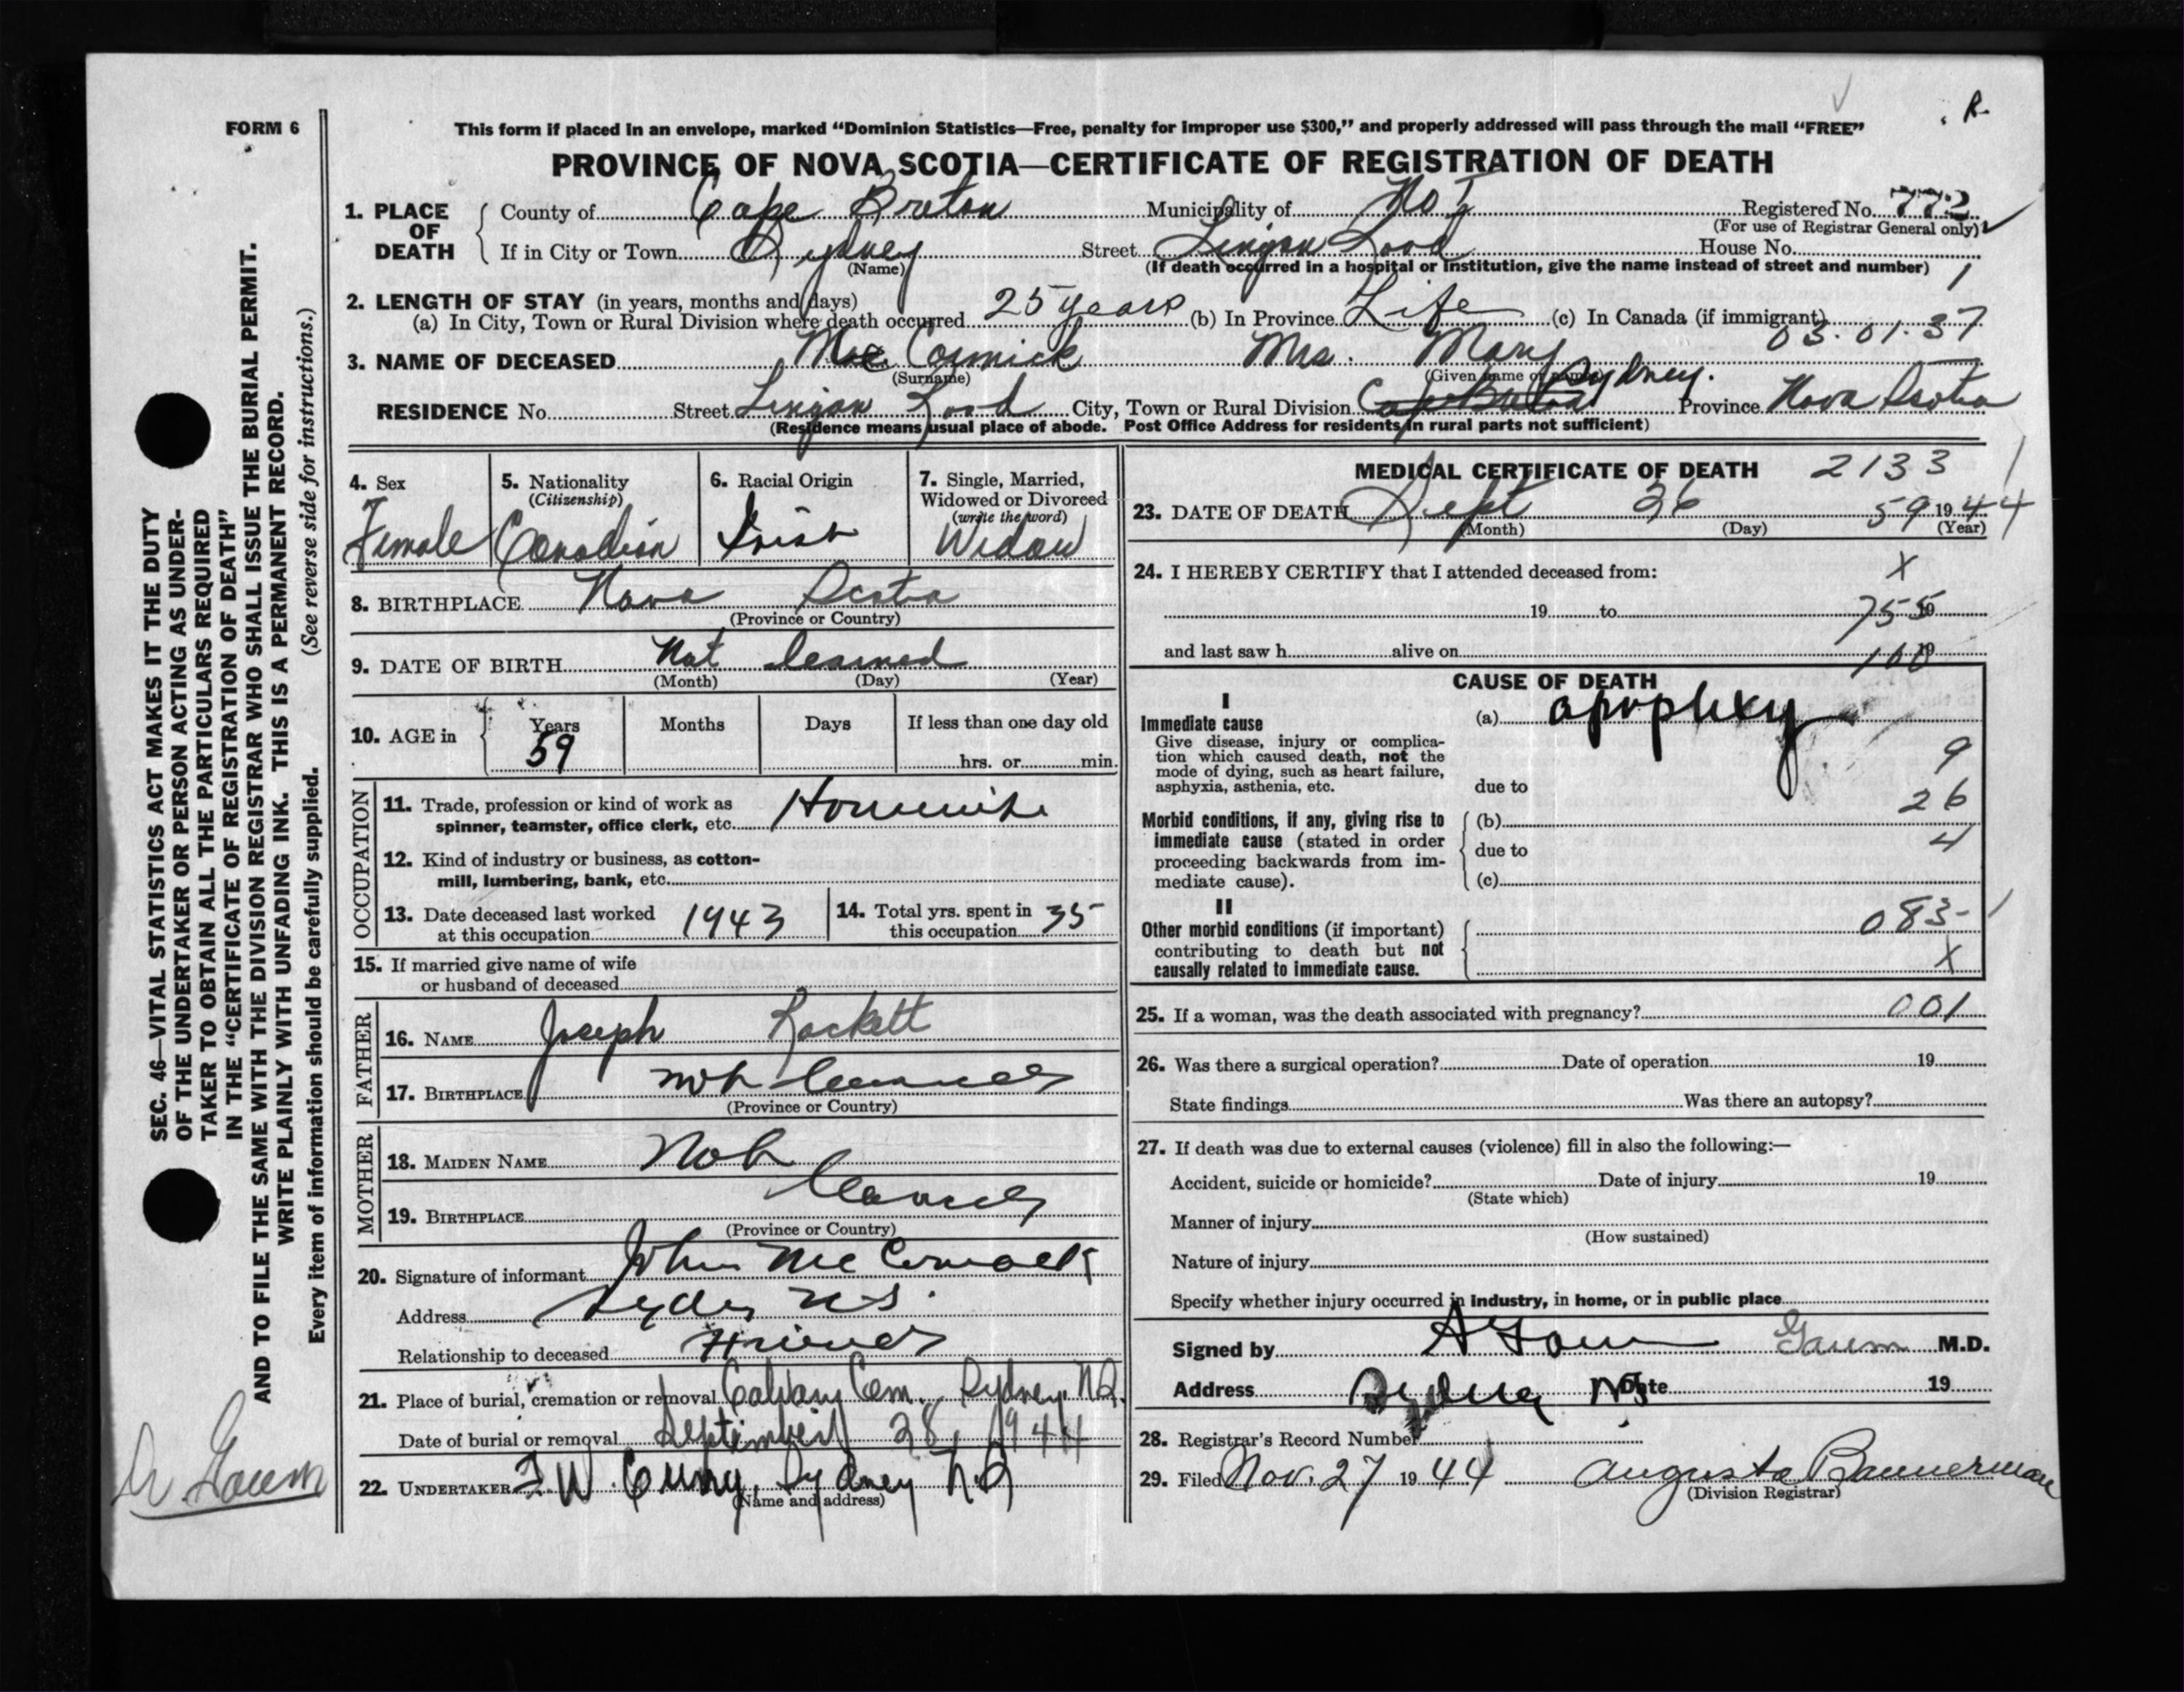 FORM 6
This form if placed in an envelope, marked “Dominion Statistics—Free, penalty for improper use $300,” and properly addressed will pass through the mail “FREE”
R
PROVINCE OF NOVA SCOTIA—CERTIFICATE OF REGISTRATION OF DEATH
1. PLACE OF DEATH
County of Cape Breton Municipality of No 1 Registered No. 772
(For use of Registrar General only)
If in City or Town Sydney Street Lingan Road House No.
(Name) (If death occurred in a hospital or institution, give the name instead of street and number) 1
2. LENGTH OF STAY (in years, months and days)
(a) In City, Town or Rural Division where death occurred 25 years (b) In Province Life (c) In Canada (if immigrant)
03.01.37
3. NAME OF DECEASED Mac Cormick Mrs. Mary
(Surname) (Given name or names)
Sydney.
RESIDENCE No. Street Lingan Road City, Town or Rural Division Cape Breton Province Nova Scotia
(Residence means usual place of abode. Post Office Address for residents in rural parts not sufficient)
4. Sex
Female
5. Nationality
(Citizenship)
Canadian
6. Racial Origin
Irish
7. Single, Married,
Widowed or Divorced
(write the word)
Widow
8. BIRTHPLACE Nova Scotia
(Province or Country)
9. DATE OF BIRTH Not learned
(Month) (Day) (Year)
10. AGE in Years Months Days If less than one day old
59 hrs. or min.
OCCUPATION
11. Trade, profession or kind of work as
spinner, teamster, office clerk, etc. Housewife
12. Kind of industry or business, as cotton-
mill, lumbering, bank, etc.
13. Date deceased last worked
at this occupation 1943
14. Total yrs. spent in
this occupation 35
15. If married give name of wife
or husband of deceased
FATHER
16. NAME Joseph Rockett
17. BIRTHPLACE not learned
(Province or Country)
MOTHER
18. MAIDEN NAME Not
learned
19. BIRTHPLACE
(Province or Country)
20. Signature of informant John McCormack
Address Sydney N.S.
Relationship to deceased Friend
21. Place of burial, cremation or removal Calvary Cem., Sydney, N.S.
Date of burial or removal September 28, 1944
22. UNDERTAKER F.W. Curry, Sydney N.S
(Name and address)
MEDICAL CERTIFICATE OF DEATH 2133
23. DATE OF DEATH Sept 26 59 1944
(Month) (Day) (Year)
24. I HEREBY CERTIFY that I attended deceased from: X
19 to 19 755
and last saw h alive on 19 100
CAUSE OF DEATH
I
Immediate cause
Give disease, injury or complica-
tion which caused death, not the
mode of dying, such as heart failure,
asphyxia, asthenia, etc.
(a) apoplexy
9
due to
26
Morbid conditions, if any, giving rise to
immediate cause (stated in order
proceeding backwards from im-
mediate cause).
(b)
due to
4
(c)
II
Other morbid conditions (if important)
contributing to death but not
causally related to immediate cause.
083- 1
X
25. If a woman, was the death associated with pregnancy? 001
26. Was there a surgical operation? Date of operation 19
State findings Was there an autopsy?
27. If death was due to external causes (violence) fill in also the following:—
Accident, suicide or homicide? Date of injury 19
(State which)
Manner of injury
(How sustained)
Nature of injury
Specify whether injury occurred in industry, in home, or in public place
Signed by A Gaum Gaum M.D.
Address Sydney NS Date 19
28. Registrar's Record Number
29. Filed Nov. 27 1944 Augusta Bannerman
(Division Registrar)
SEC. 46—VITAL STATISTICS ACT MAKES IT THE DUTY
OF THE UNDERTAKER OR PERSON ACTING AS UNDER-
TAKER TO OBTAIN ALL THE PARTICULARS REQUIRED
IN THE “CERTIFICATE OF REGISTRATION OF DEATH”
AND TO FILE THE SAME WITH THE DIVISION REGISTRAR WHO SHALL ISSUE THE BURIAL PERMIT.
WRITE PLAINLY WITH UNFADING INK. THIS IS A PERMANENT RECORD.
Every item of information should be carefully supplied. (See reverse side for instructions.)
Dr. Gaum